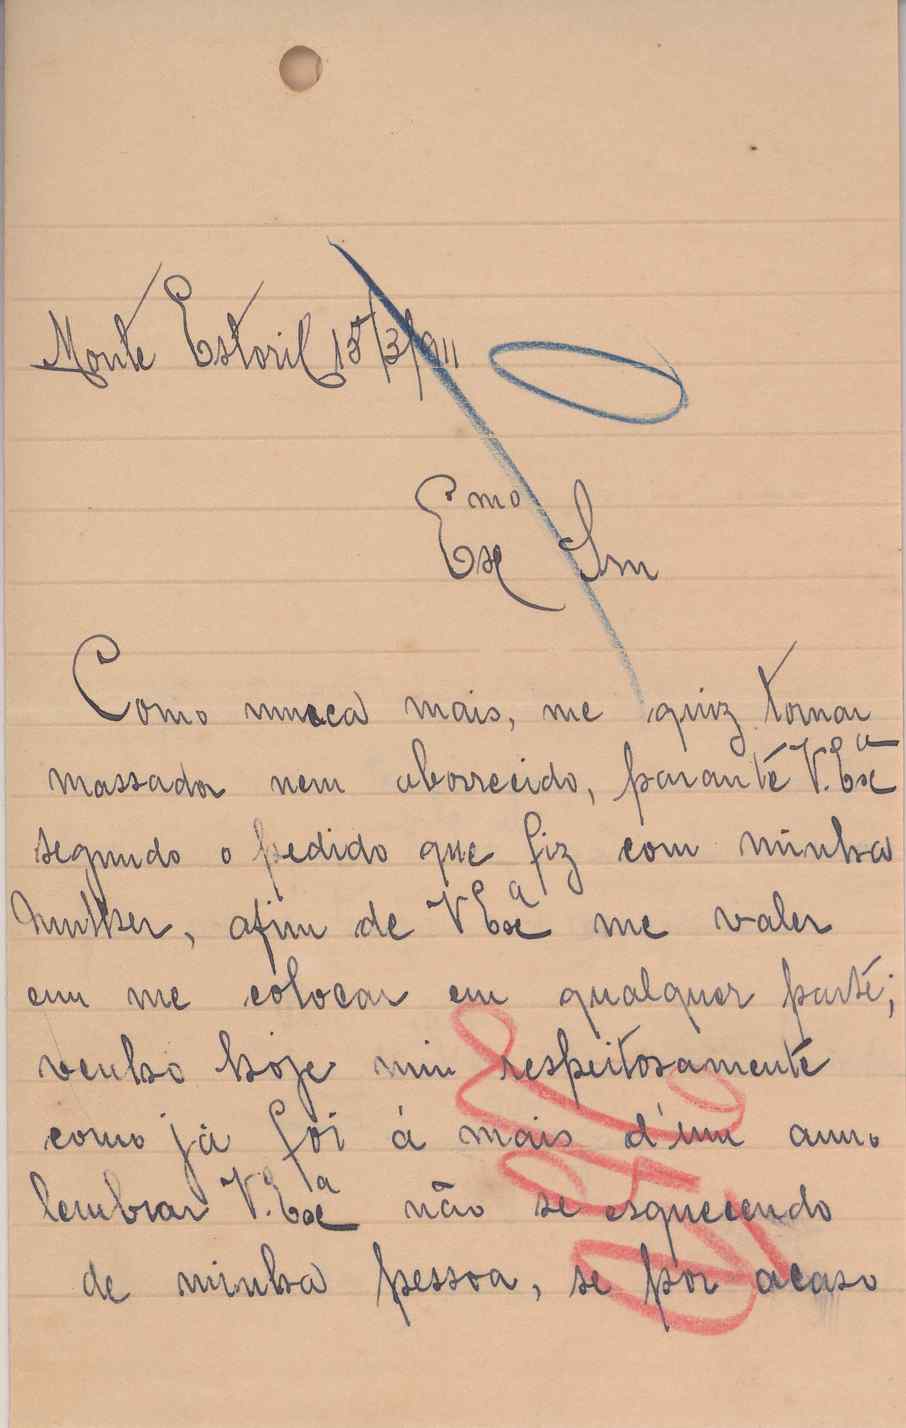 Monte Estoril 15/3/911
Exmo Snr
Como nunca mais, me quiz tornar
massador nem aborrecido, parante V. Exa
segundo o pedido que fiz com minha
mulher, afim de V Exa me valer
em me colocar em qualquer parte;
venho hoje mui respeitosamente
como já foi á mais d'um anno
lembrar V. Exa não se esquecendo
de minha pessoa, se por acaso